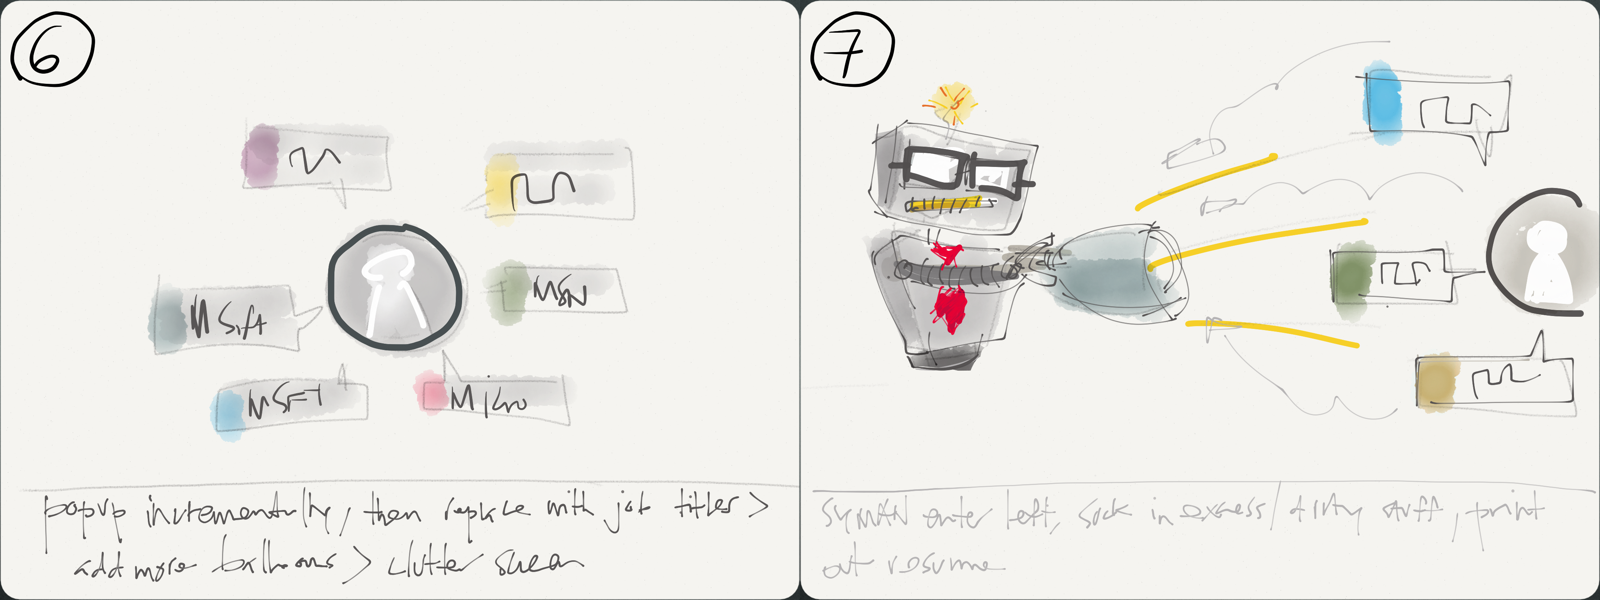 6
M Sift
MSN
MSFT
Micro
popup incrementally, then replace with job titles >
add more balloons > clutter screen
7
SYMAN enter left, suck in excess / dirty stuff, print
out resume